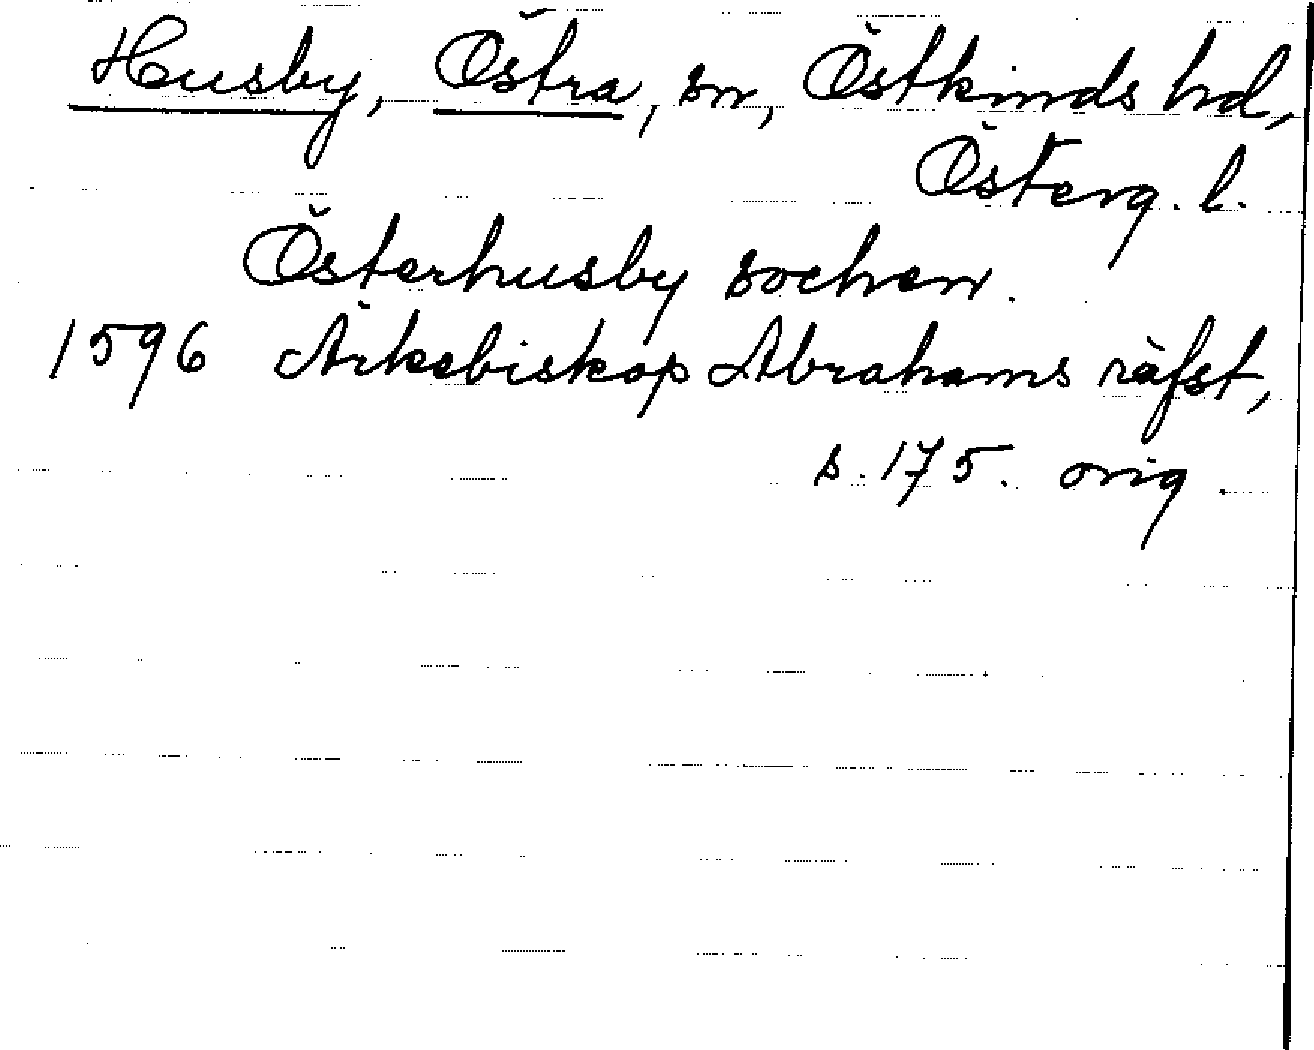 Husby, Östra, sn, Östkinds hd,
Österg. l.
Österhusby sochen.
1596 Ärkebiskop Abrahams räfst,
s. 175. orig.